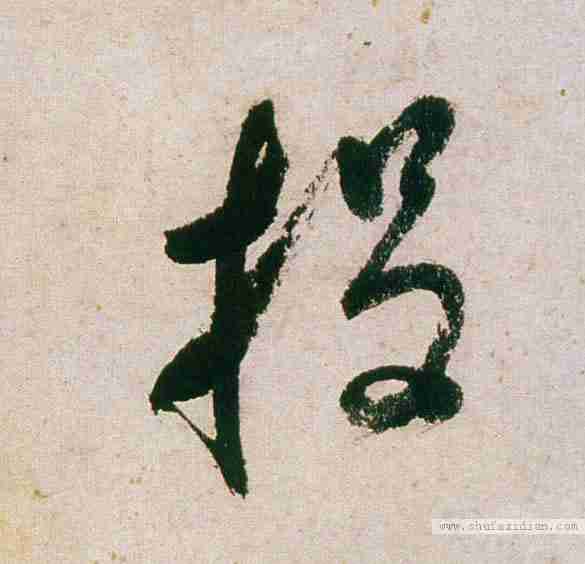 投
www.shufazidian.com